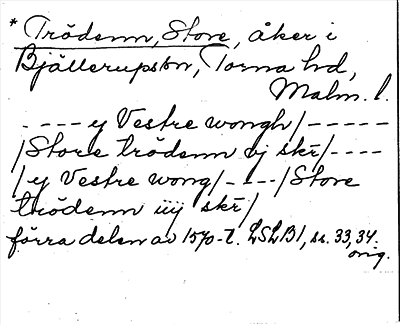 * Trödenn, Store, åker i
Bjällerups sn, Torna hd,
Malm. l.
- - - - y Vestre wongh/- - - - - -
/Store trödenn vj skr/- - - -
/y Vestre wong/- - - -/Store
trödenn iiij skr/
förra delen av 1570-t. LSLB1, ss. 33, 34.
orig.